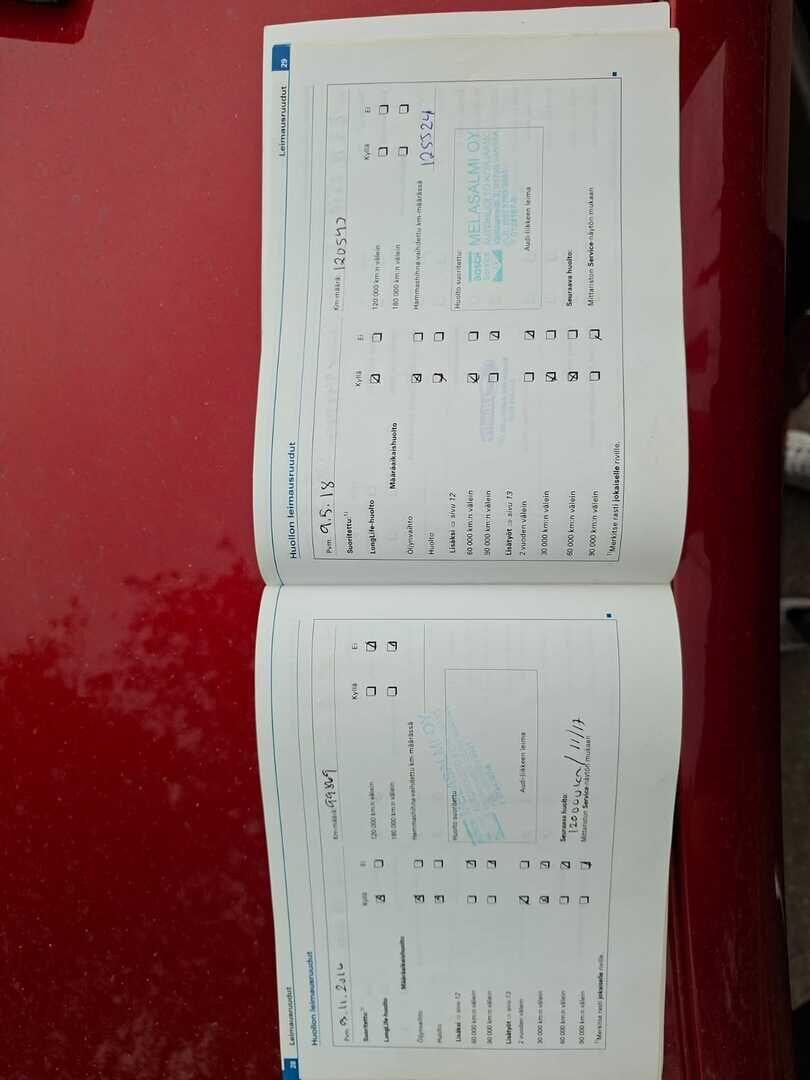 28 Leimausruudut
Huollon leimausruudut
Pvm 9.11.2016 Km-määrä: 99869
Suoritettu:¹⁾ Kyllä Ei Kyllä Ei
LongLife-huolto 120 000 km:n välein
180 000 km:n välein
Määräaikaishuolto
Öljynvaihto Hammashihna vaihdettu km-määrässä
Huolto
Lisäksi ⇨ sivu 12 Huolto suoritettu:
60 000 km:n välein
90 000 km:n välein
Lisätyöt ⇨ sivu 13
2 vuoden välein Audi-liikkeen leima
30 000 km:n välein
60 000 km:n välein Seuraava huolto:
120000km / 11/17
90 000 km:n välein Mittariston Service-näytön mukaan
¹⁾Merkitse rasti jokaiselle riville.
Leimausruudut 29
Huollon leimausruudut
Pvm 9.5.18 Km-määrä: 120590
Suoritettu:¹⁾ Kyllä Ei Kyllä Ei
LongLife-huolto 120 000 km:n välein
180 000 km:n välein
Määräaikaishuolto
Öljynvaihto Hammashihna vaihdettu km-määrässä
Huolto 125524
Lisäksi ⇨ sivu 12 Huolto suoritettu:
60 000 km:n välein BOSCH MELASALMI OY
90 000 km:n välein
Lisätyöt ⇨ sivu 13
2 vuoden välein Audi-liikkeen leima
30 000 km:n välein
60 000 km:n välein Seuraava huolto:
90 000 km:n välein Mittariston Service-näytön mukaan
¹⁾Merkitse rasti jokaiselle riville.